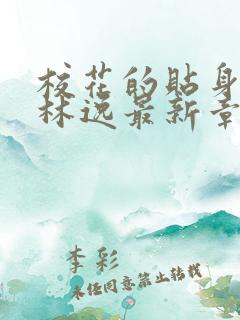 校花的贴身
林逸最新章
李彩
未经同意禁止转载